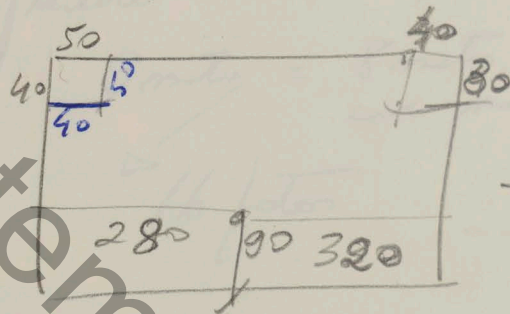 50 40
40 50 80
40
280 90 320